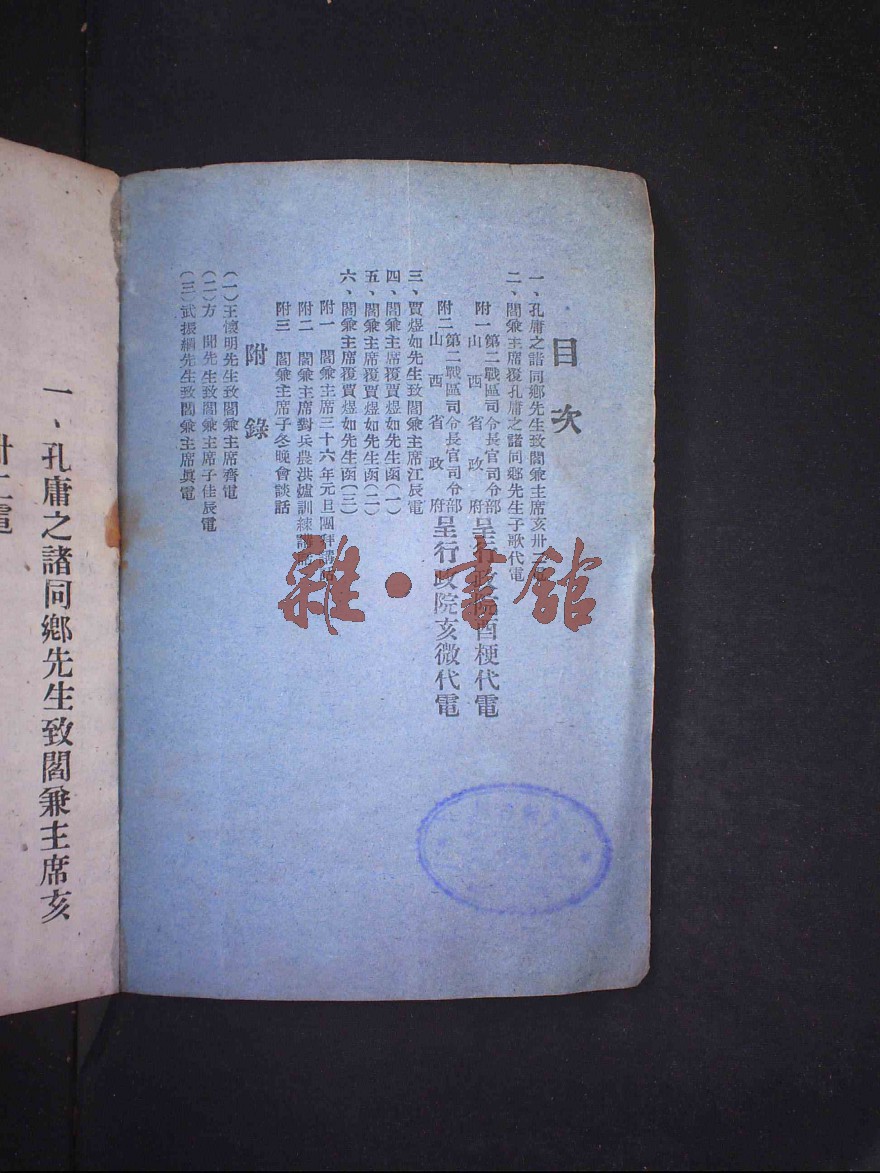 目次
一、孔庸之諸同鄉先生致閻兼主席亥卅二電
二、閻兼主席覆孔庸之諸同鄉先生子歌代電
附一 第二戰區司令長官司令部 山西省政府 呈行政院酉梗代電
附二 第二戰區司令長官司令部 山西省政府 呈行政院亥微代電
三、賈煜如先生致閻兼主席江辰電
四、閻兼主席覆賈煜如先生函(一)
五、閻兼主席覆賈煜如先生函(二)
六、閻兼主席覆賈煜如先生函(三)
附一 閻兼主席三十六年元旦團拜講話
附二 閻兼主席對兵農洪爐訓練講話
附三 閻兼主席子冬晚會談話
附錄
(一)王懷明先生致閻兼主席齊電
(二)方聞先生致閻兼主席子佳辰電
(三)武振綱先生致閻兼主席眞電
一、孔庸之諸同鄉先生致閻兼主席亥
卅二電
雜·書館